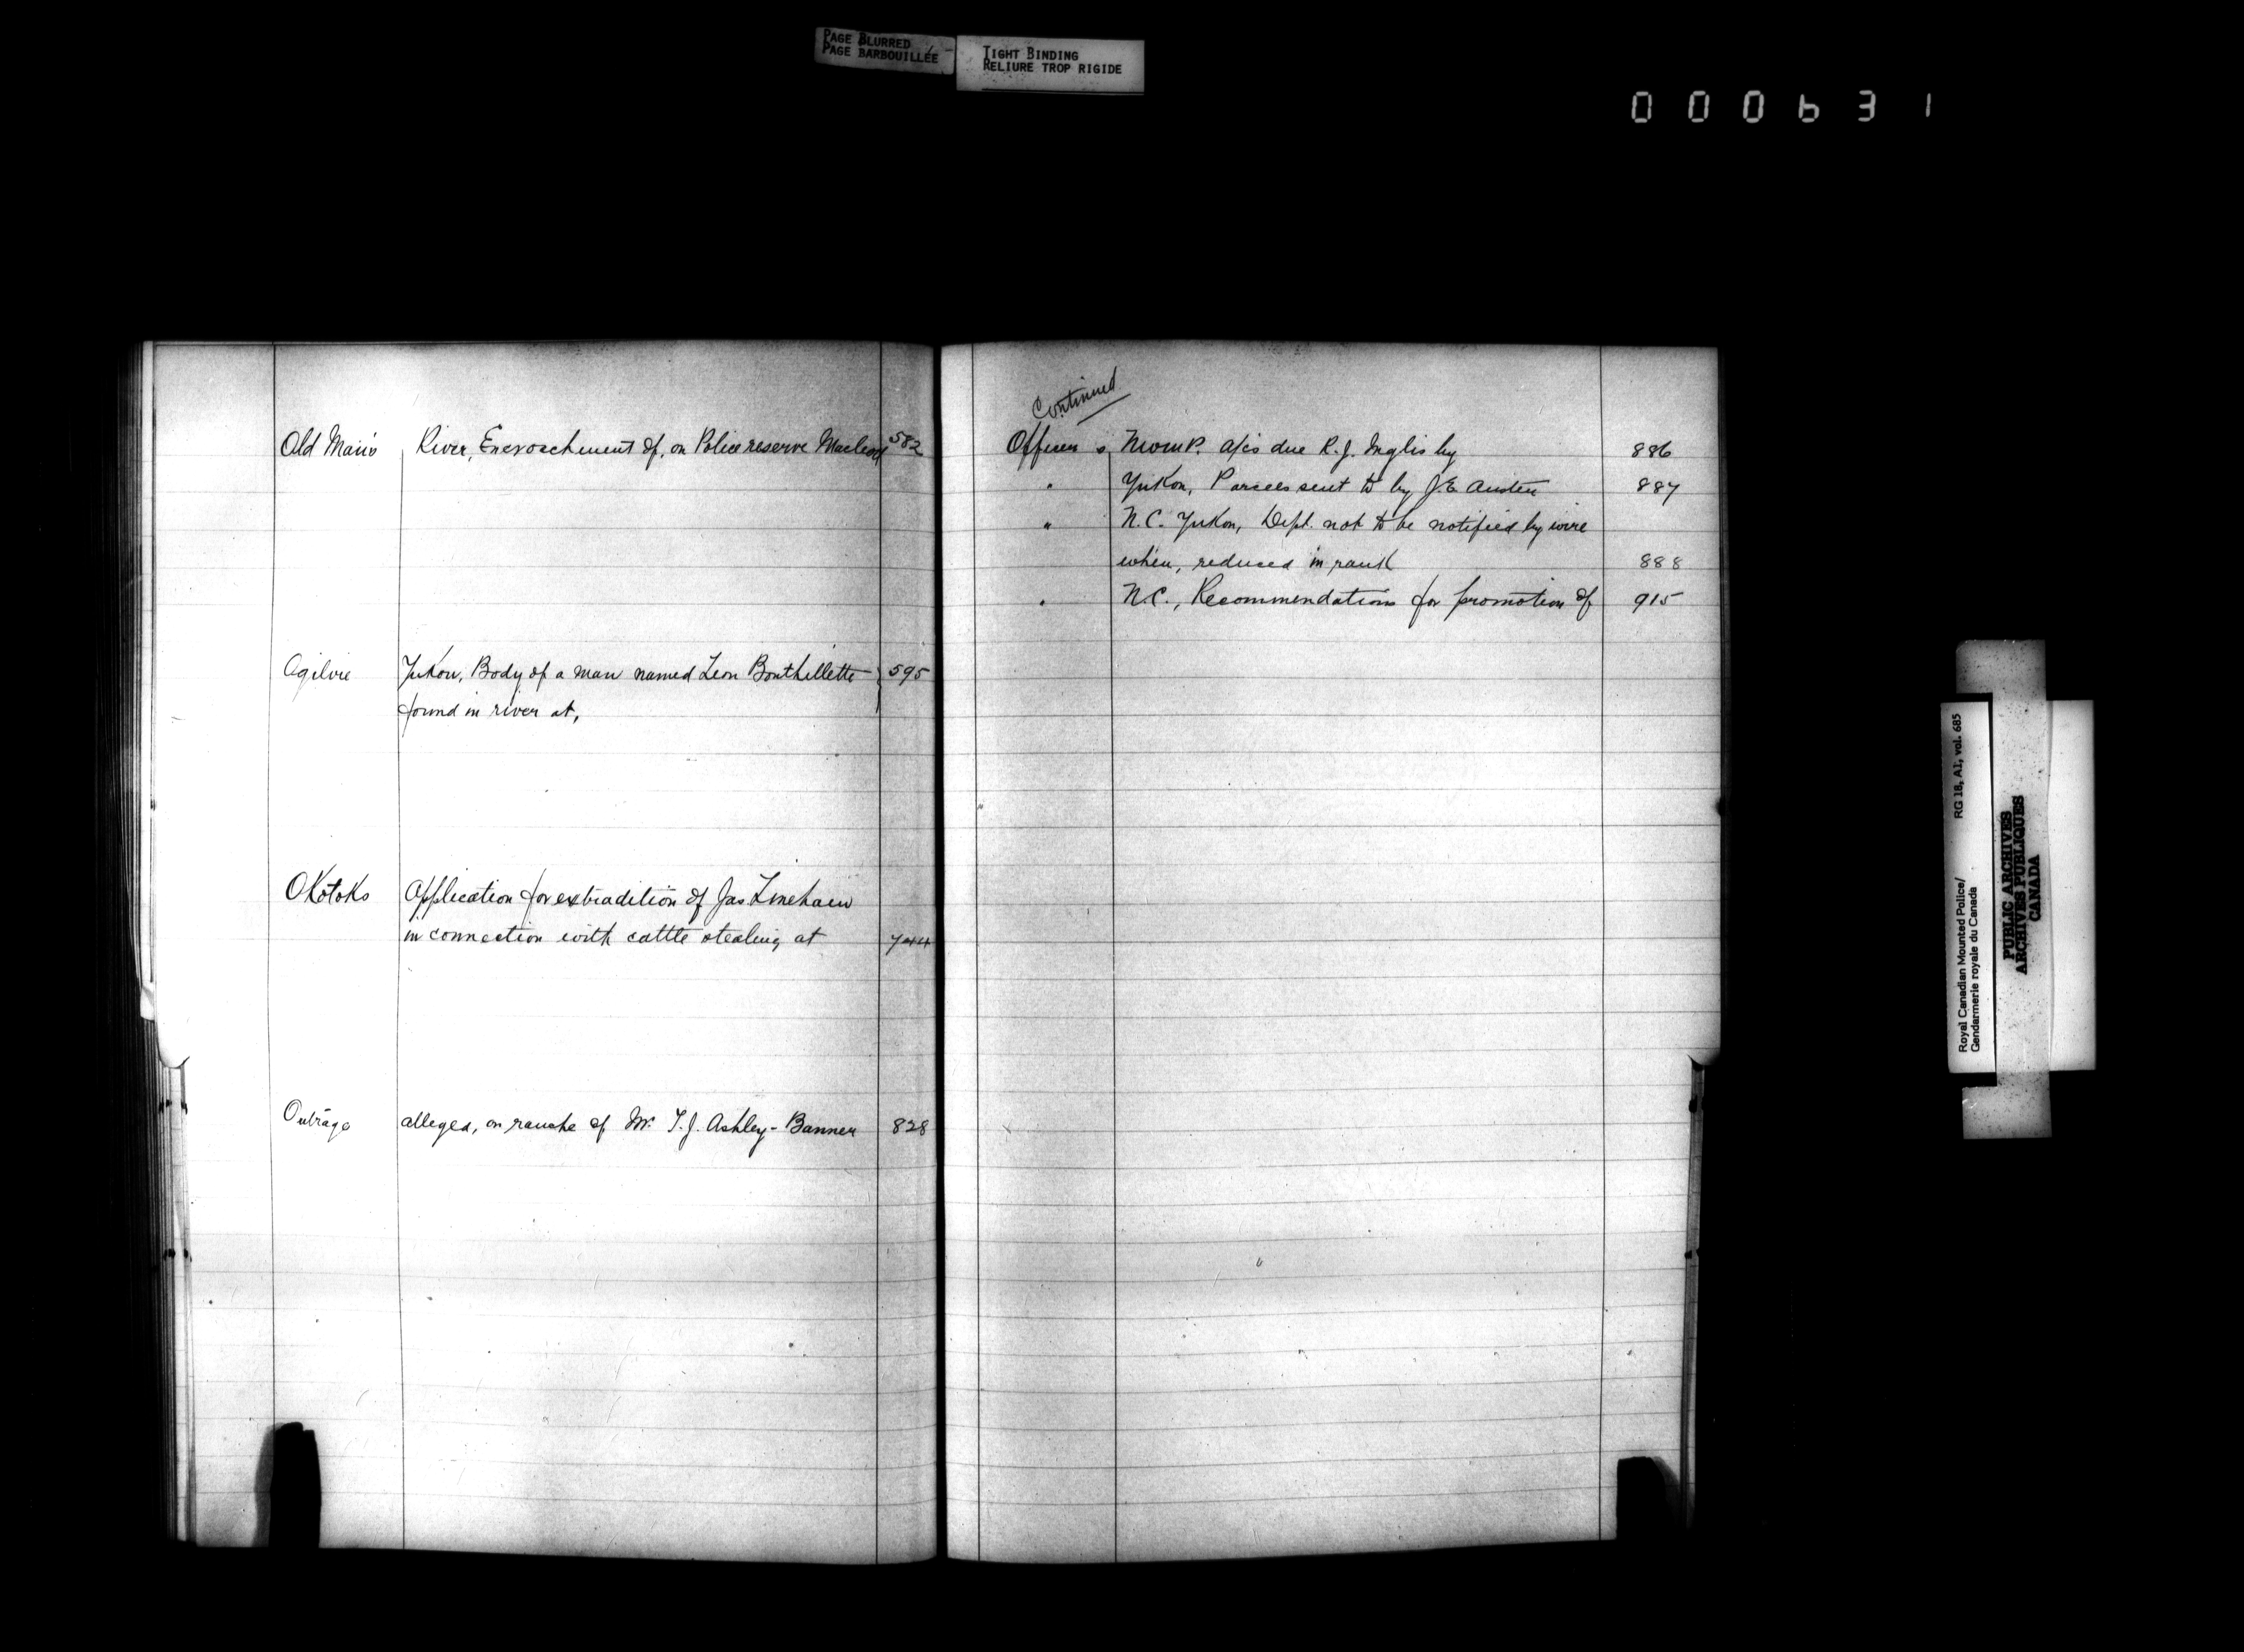 PAGE BLURRED
PAGE BARBOUILLÉE
TIGHT BINDING
RELIURE TROP RIGIDE
000631
Old Man's River, Encroachment of, on Police reserve Macleod 582
Ogilvie Yukon, Body of a man named Leon Bouthillette 595
found in river at,
Okotoks Application for extradition of Jas Linehain
in connection with cattle stealing at 744
Outrage alleged, on ranche of Mr. T. J. Ashley-Banner 828
Continued
Officers NWMP. a/cs due R. J. Inglis by 886
" Yukon, Parcels sent to by J. E. Austen 887
" N.C. Yukon, Dept. not to be notified by wire
when, reduced in rank 888
" N.C., Recommendations for promotion of 915
Royal Canadian Mounted Police/ RG 18, A1, vol. 685
Gendarmerie royale du Canada
PUBLIC ARCHIVES
ARCHIVES PUBLIQUES
CANADA